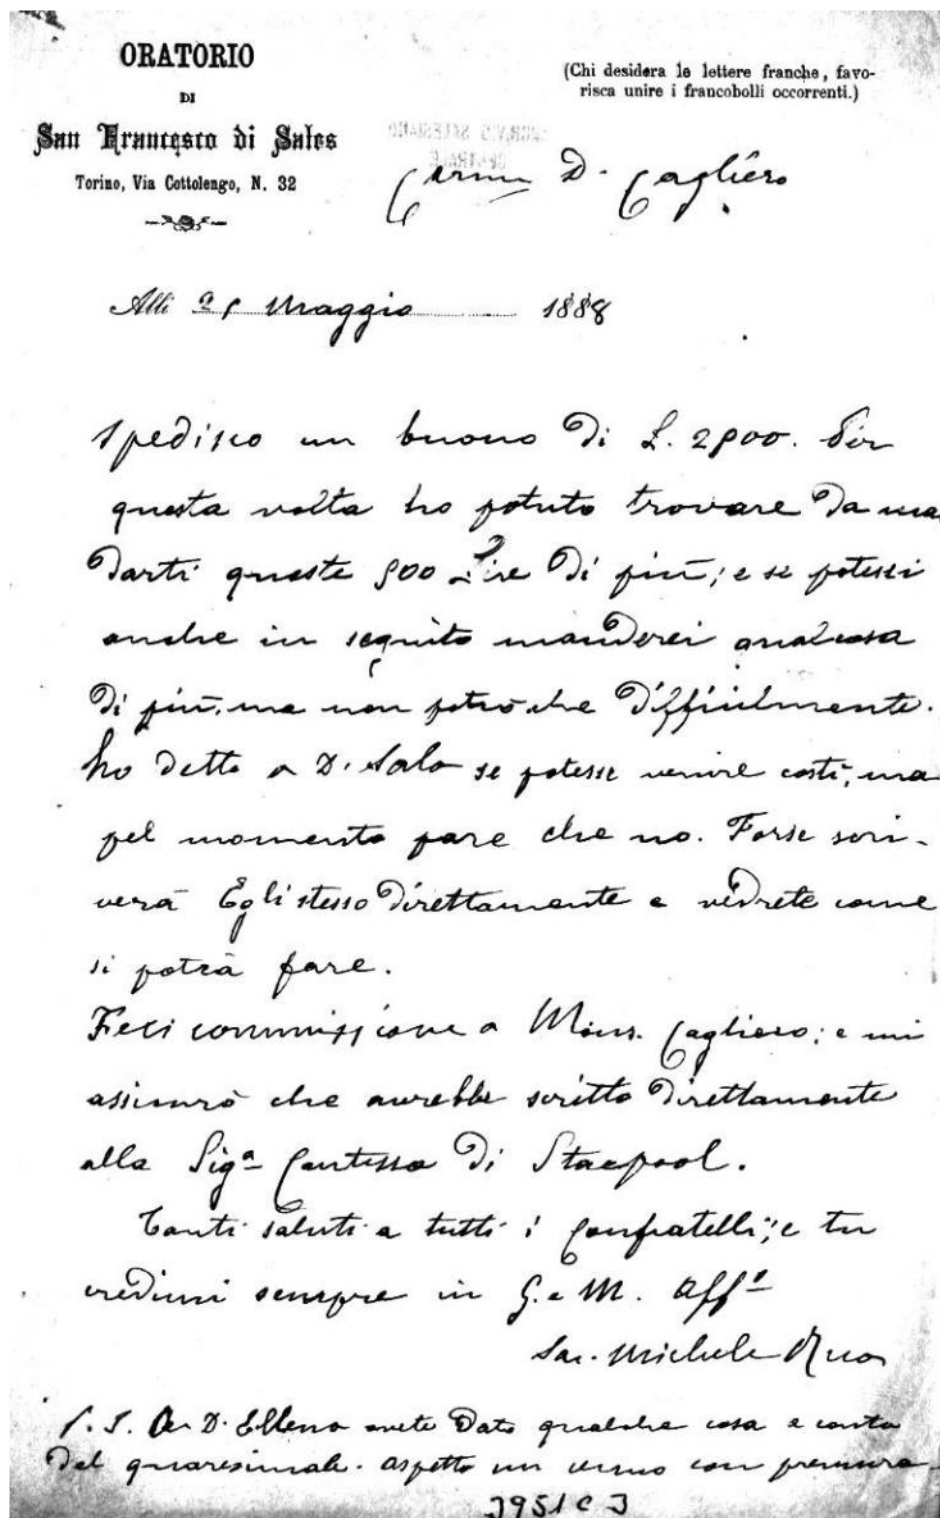 ORATORIO
DI
San Francesco di Sales
Torino, Via Cottolengo, N. 32
(Chi desidera le lettere franche, favo-
risca unire i francobolli occorrenti.)
ARCHIVIO SALESIANO
CENTRALE
Car.mo D. Cagliero
Alli 25 Maggio 1888
Spedisco un buono di L. 2500. Per
questa volta ho potuto trovare da man
darti queste 500 Lire di più; e se potessi
anche in seguito manderei qualcosa
di più, ma non potrò che difficilmente.
Ho detto a D. Sala se potesse venire costì, ma
pel momento pare che no. Forse scri-
verà Egli stesso direttamente e vedrete come
si potrà fare.
Feci commissione a Mons. Cagliero; e mi
assicurò che avrebbe scritto direttamente
alla Sig.a Contessa di Stacpool.
Tanti saluti a tutti i Confratelli; e tu
credimi sempre in G. e M. Aff.o
Sac. Michele Rua
P.S. A D. Elleno avete dato qualche cosa a conto
del quaresimale. Aspetto un cenno con premura.
3951 C 3